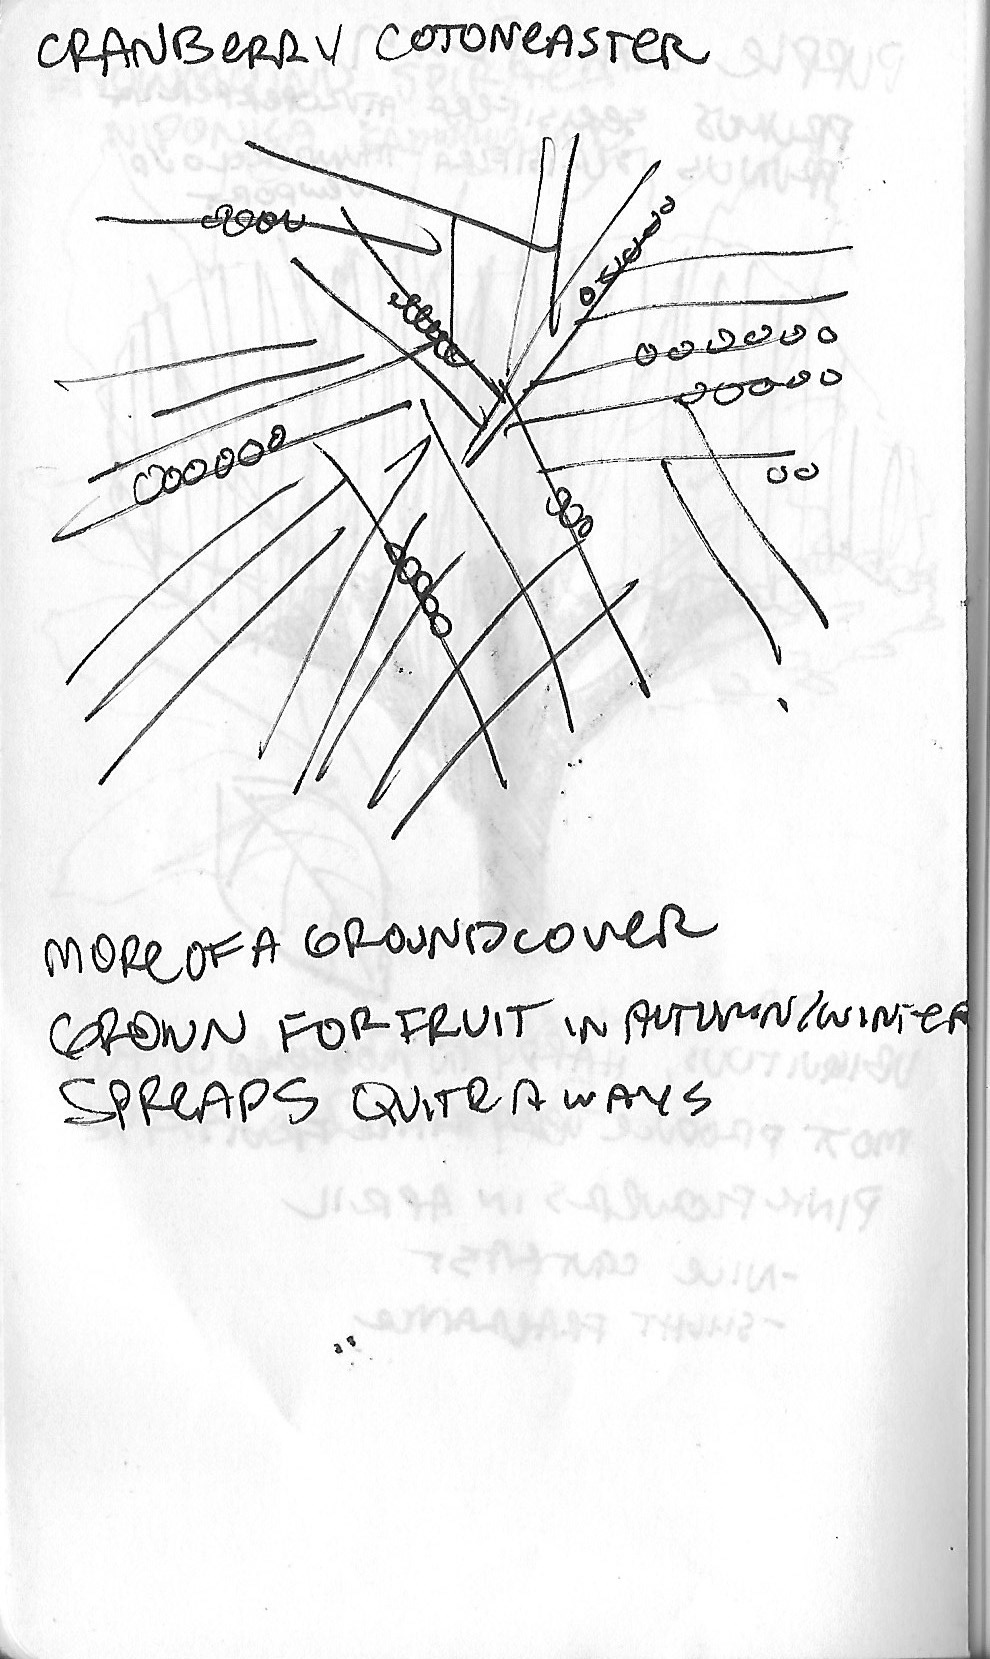 CRANBERRY COTONEASTER
MORE OF A GROUNDCOVER
GROWN FOR FRUIT IN AUTUMN/WINTER
SPREADS QUITE A WAYS